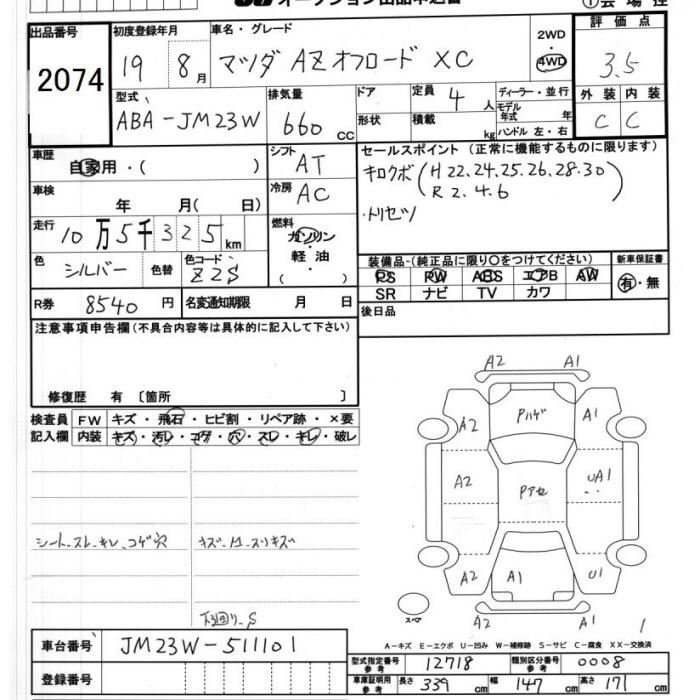 オークション出品申込書 ①会場控
出品番号 2074
初度登録年月 19 8月
車名・グレード マツダ AZオフロード XC
2WD・4WD
評価点 3.5
型式 ABA-JM23W
排気量 660 cc
ドア
形状
定員 4人
積載 kg
ディーラー・並行
モデル年式 年
ハンドル 左・右
外装 C
内装 C
車歴 自家用・( )
シフト AT
セールスポイント (正常に機能するものに限ります)
キロクボ (H22.24.25.26.28.30
R2.4.6)
・トリセツ
車検 年 月( 日)
冷房 AC
走行 10万5千325km
燃料 ガソリン・軽油・( )
色 シルバー 色替
色コード ZZS
装備品-(純正品に限り○をつけてください)
PS PW ABS エアB AW
SR ナビ TV カワ
新車保証書 有・無
R券 8540円
名変通知期限 月 日
後日品
注意事項申告欄(不具合内容等は具体的に記入して下さい)
修復歴 有 〔箇所 〕
検査員記入欄
FW キズ・飛石・ヒビ割・リペア跡・×要
内装 キズ・汚レ・コゲ・穴・スレ・キレ・破レ
シートスレ キレ コゲ穴
A2 A1
A2 Pハゲ A1
A2 Pアセ UA1
A2 A1 U1
スペア
A2 A1
A-キズ E-エクボ U-凹み W-補修跡 S-サビ C-腐食 XX-交換済
車台番号 JM23W-511101
登録番号
型式指定番号 参考 12718
類別区分番号 参考 0008
車庫証明用 参考 長さ 339cm 幅 147cm 高さ 171cm